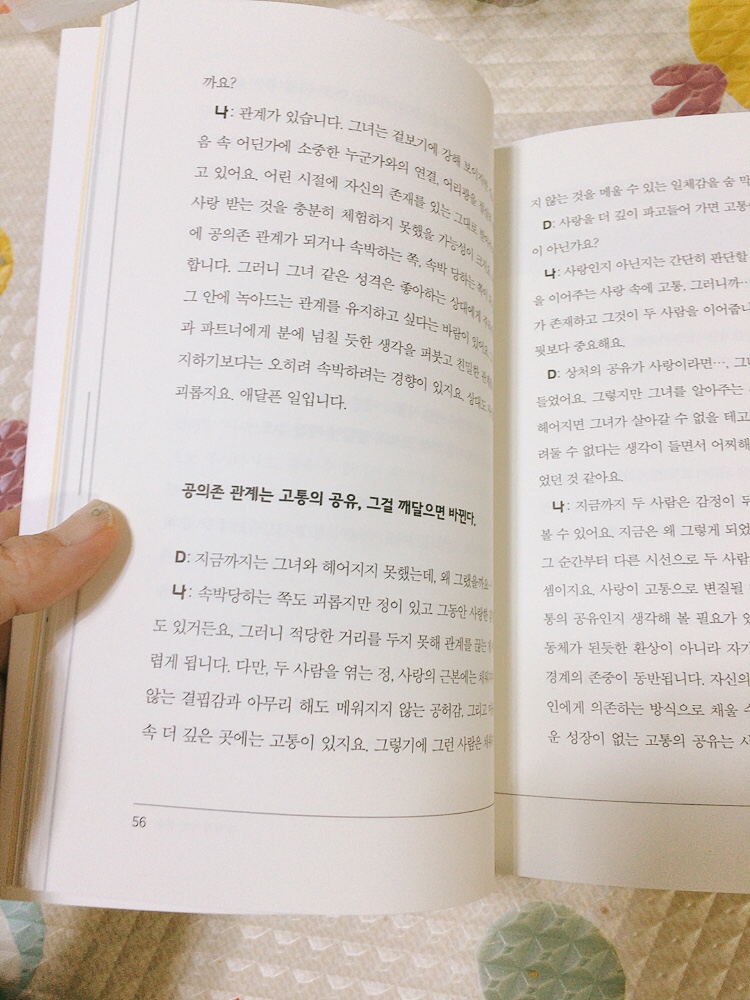 까요?
나: 관계가 있습니다. 그녀는 겉보기에 강해 보이지만,
음 속 어딘가에 소중한 누군가와의 연결, 어리광을
고 있어요. 어린 시절에 자신의 존재를 있는 그대로
사랑 받는 것을 충분히 체험하지 못했을 가능성이
에 공의존 관계가 되거나 속박하는 쪽, 속박 당하는 쪽이
합니다. 그러니 그녀 같은 성격은 좋아하는 상대에게
그 안에 녹아드는 관계를 유지하고 싶다는 바람이 있어요.
과 파트너에게 분에 넘칠 듯한 생각을 퍼붓고 친밀한
지하기보다는 오히려 속박하려는 경향이 있지요. 상대도
괴롭지요. 애달픈 일입니다.
공의존 관계는 고통의 공유, 그걸 깨달으면 바뀐다.
D: 지금까지는 그녀와 헤어지지 못했는데, 왜 그랬을까요
나: 속박당하는 쪽도 괴롭지만 정이 있고 그동안 사랑한
도 있거든요. 그러니 적당한 거리를 두지 못해 관계를 끊는
럽게 됩니다. 다만, 두 사람을 엮는 정, 사랑의 근본에는
않는 결핍감과 아무리 해도 메워지지 않는 공허감, 그리고
속 더 깊은 곳에는 고통이 있지요. 그렇기에 그런 사람은
56
지 않는 것을 메울 수 있는 일체감을 숨 막
D: 사랑을 더 깊이 파고들어 가면 고통
이 아닌가요?
나: 사랑인지 아닌지는 간단히 판단할
을 이어주는 사랑 속에 고통, 그러니까…
가 존재하고 그것이 두 사람을 이어줍니
뭣보다 중요해요.
D: 상처의 공유가 사랑이라면…, 그
들었어요. 그렇지만 그녀를 알아주는
헤어지면 그녀가 살아갈 수 없을 테고
려둘 수 없다는 생각이 들면서 어찌해
었던 것 같아요.
나: 지금까지 두 사람은 감정이 두
볼 수 있어요. 지금은 왜 그렇게 되었
그 순간부터 다른 시선으로 두 사람
셈이지요. 사랑이 고통으로 변질될
통의 공유인지 생각해 볼 필요가 있
동체가 된듯한 환상이 아니라 자기
경계의 존중이 동반됩니다. 자신의
인에게 의존하는 방식으로 채울 수
운 성장이 없는 고통의 공유는 사